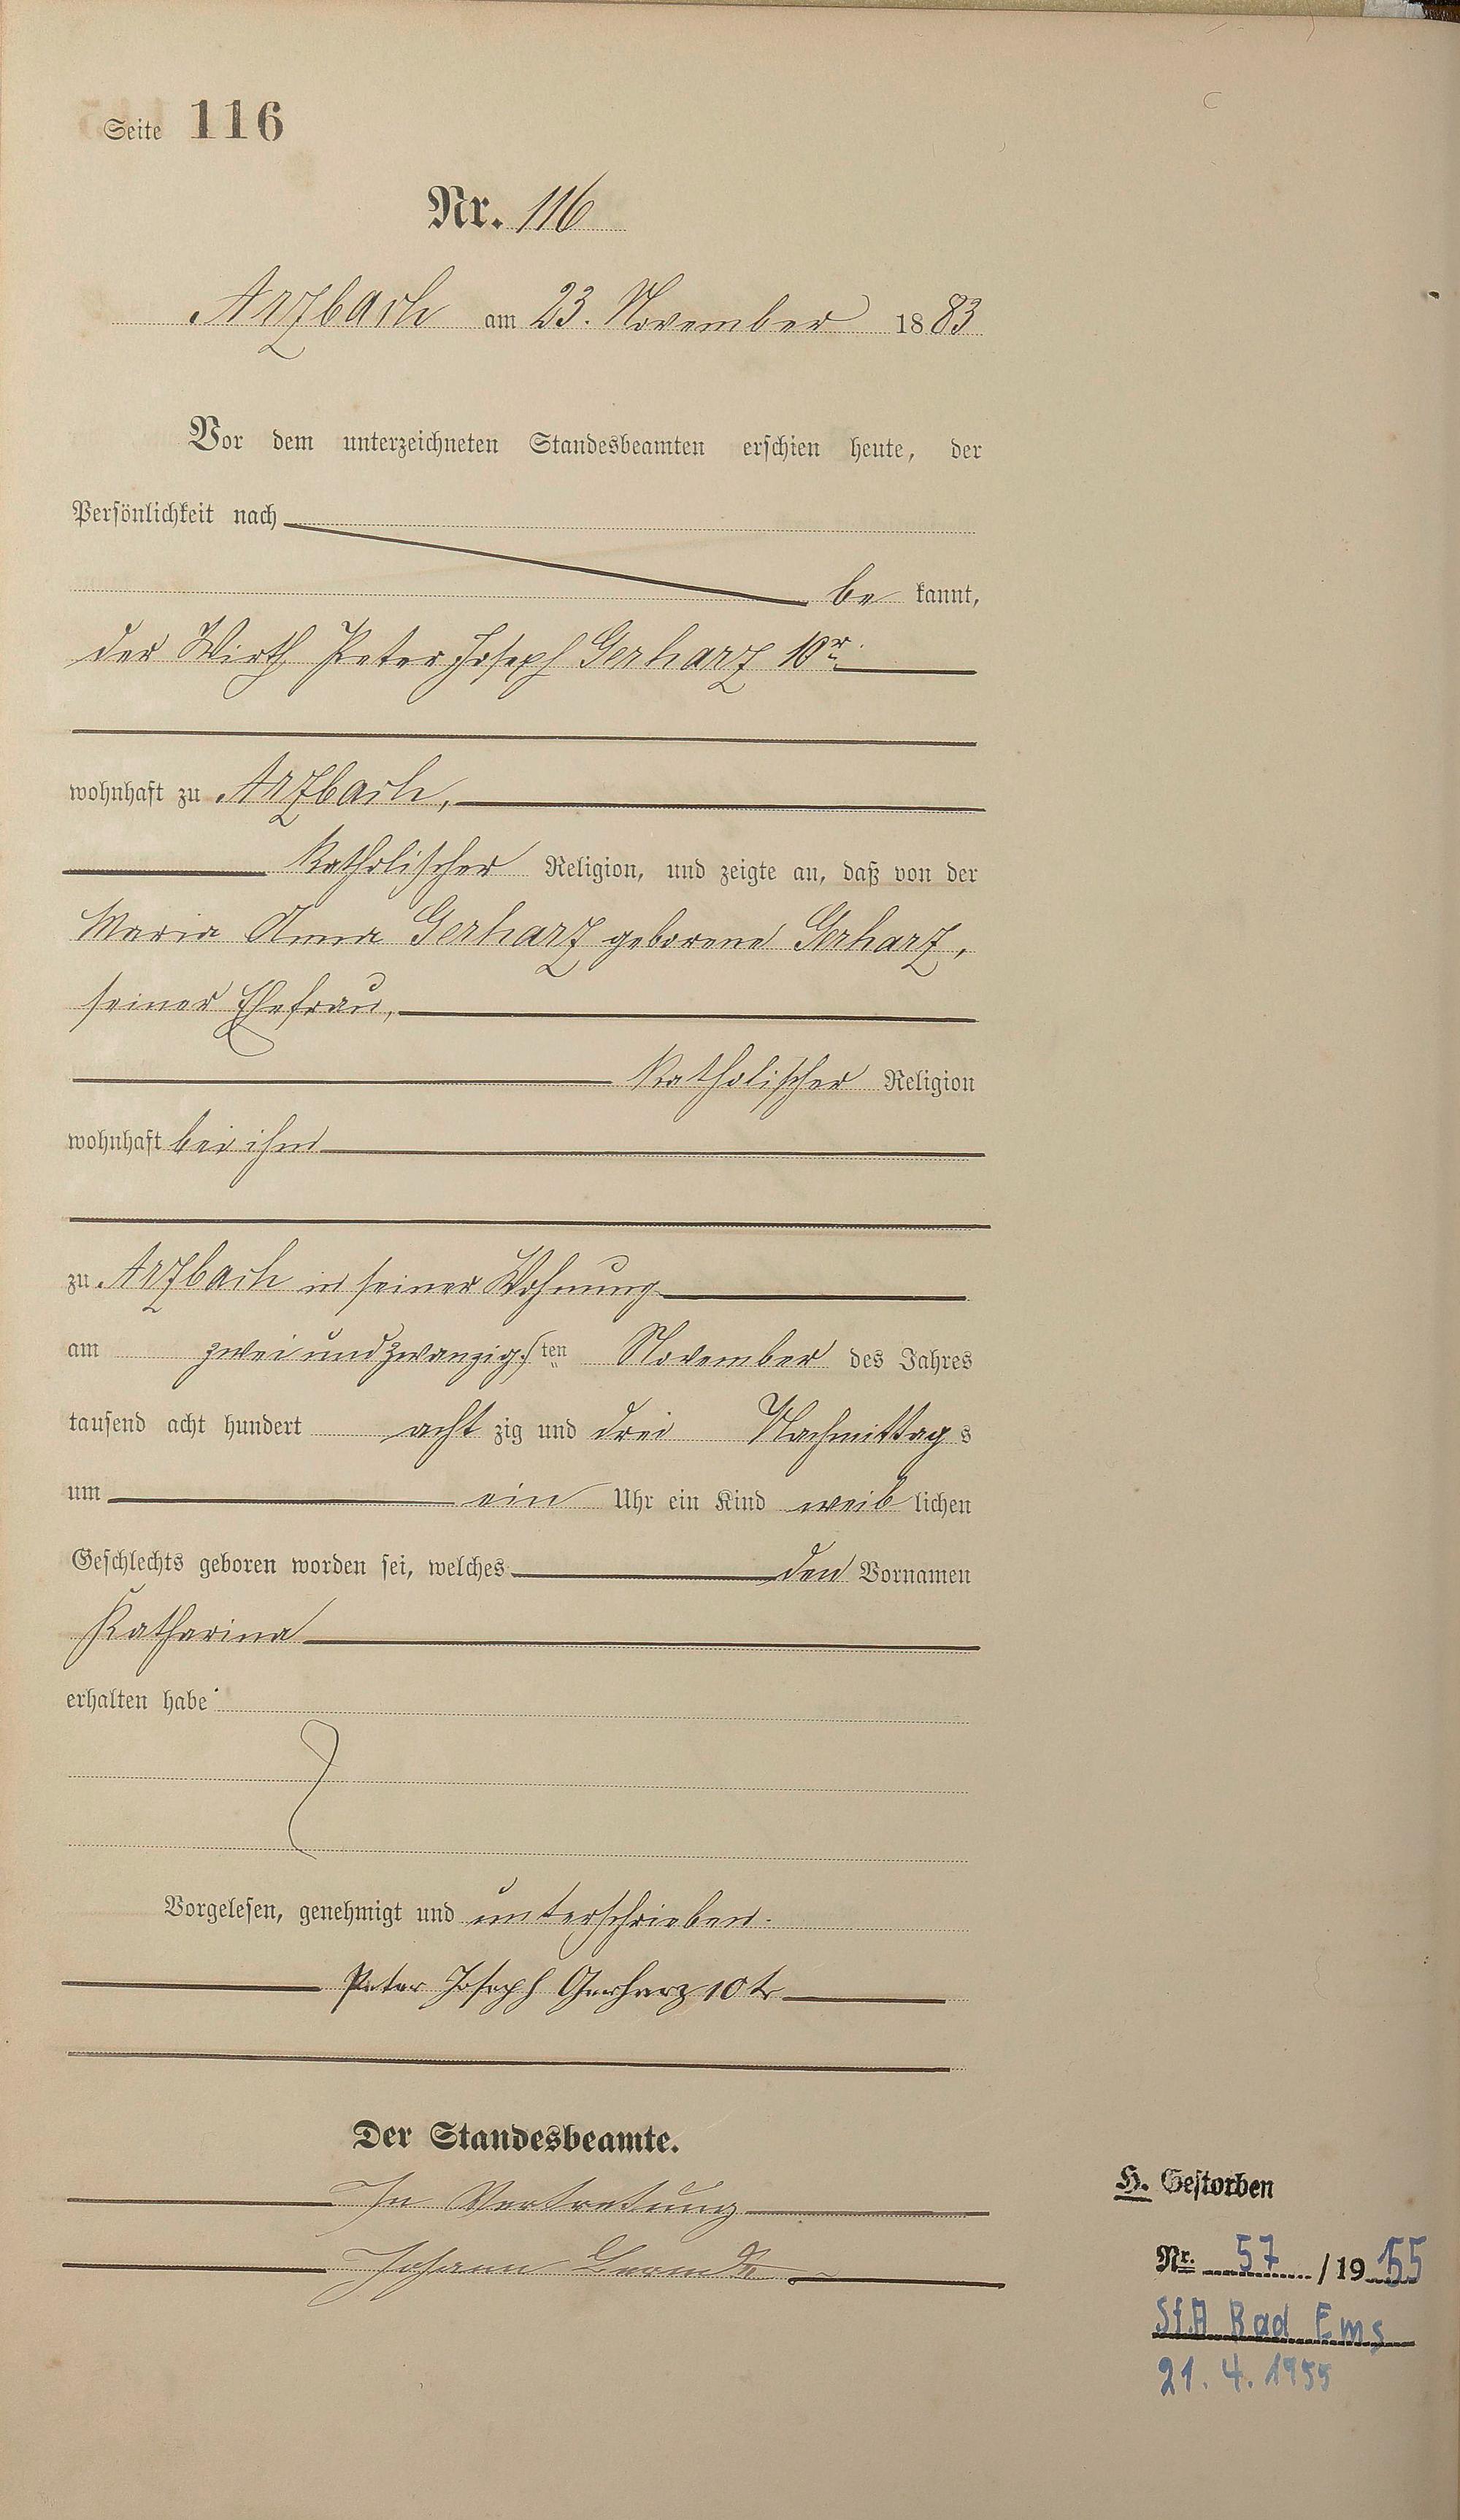 Seite 116
Nr. 116
Arzbach am 23. November 1883
Vor dem unterzeichneten Standesbeamten erschien heute, der
Persönlichkeit nach
be kannt,
der Wirth Peter Joseph Gerharz 10r.
wohnhaft zu Arzbach,
katholischer Religion, und zeigte an, daß von der
Maria Anna Gerharz geborene Gerharz,
seiner Ehefrau,
katholischer Religion
wohnhaft bei ihm
zu Arzbach in seiner Wohnung
am zwei und zwanzigsten November des Jahres
tausend acht hundert acht zig und drei Nachmittag s
um ein Uhr ein Kind weib lichen
Geschlechts geboren worden sei, welches den Vornamen
Katharina
erhalten habe
Vorgelesen, genehmigt und unterschrieben.
Peter Joseph Gerharz 10tr
Der Standesbeamte.
In Vertretung
Johann
H. Gestorben
Nr. 57 / 19 55
St.A Bad Ems
21. 4. 1955